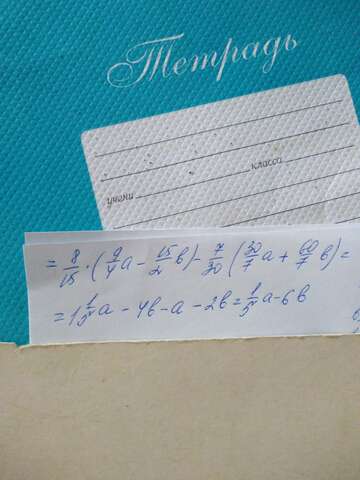 Тетрадь
учени
класса
= 8/15 · (9/4 a - 15/2 b) - 7/30 (30/7 a + 60/7 b) =
= 1 1/5 a - 4b - a - 2b = 1/5 a - 6b